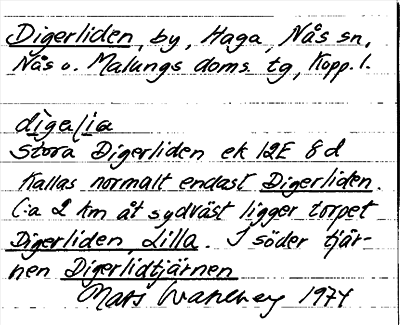 Digerliden, by, Haga, Nås sn,
Nås o. Malungs doms. tg, Kopp. l.
digalia
Stora Digerliden ek 12E 8d
Kallas normalt endast Digerliden.
C:a 2 km åt sydväst ligger torpet
Digerliden, Lilla. I söder tjär-
nen Digerlidtjärnen
Mats Wahlberg 1974